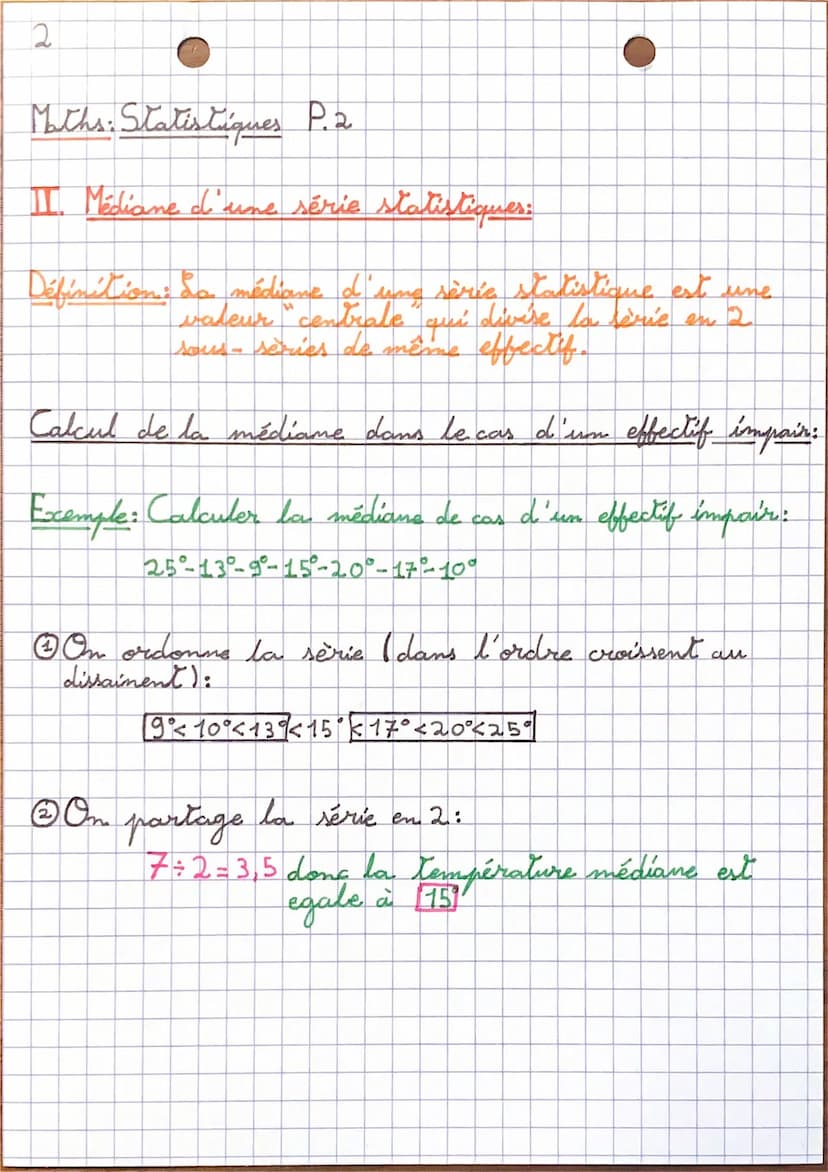 2
Maths: Statistiques P.2
II. Médiane d'une série statistiques:
Définition: La médiane d'une sèrie statistique est une
valeur "centrale" qui divise la sèrie en 2
sous-sèries de même effectif.
Calcul de la médiane dans le cas d'un effectif impair:
Exemple: Calculer la médiane de cas d'un effectif impair:
25°-13°-9°-15°-20°-17°-10°
①On ordonne la sèrie (dans l'ordre croissent au
dissaiment):
9°<10°<13°<15°<17°<20°<25°
②On partage la série en 2:
7÷2=3,5 donc la température médiane est
egale à 15°